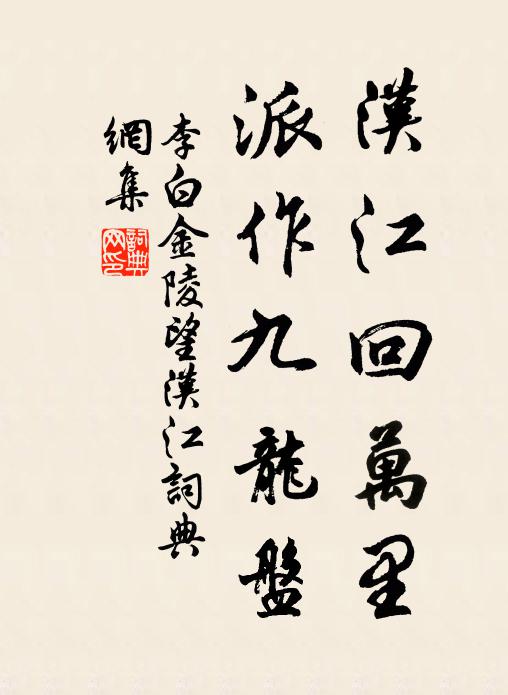 漢江回萬里
派作九龍盤
李白金陵望漢江詞典
網集
詞典
网印